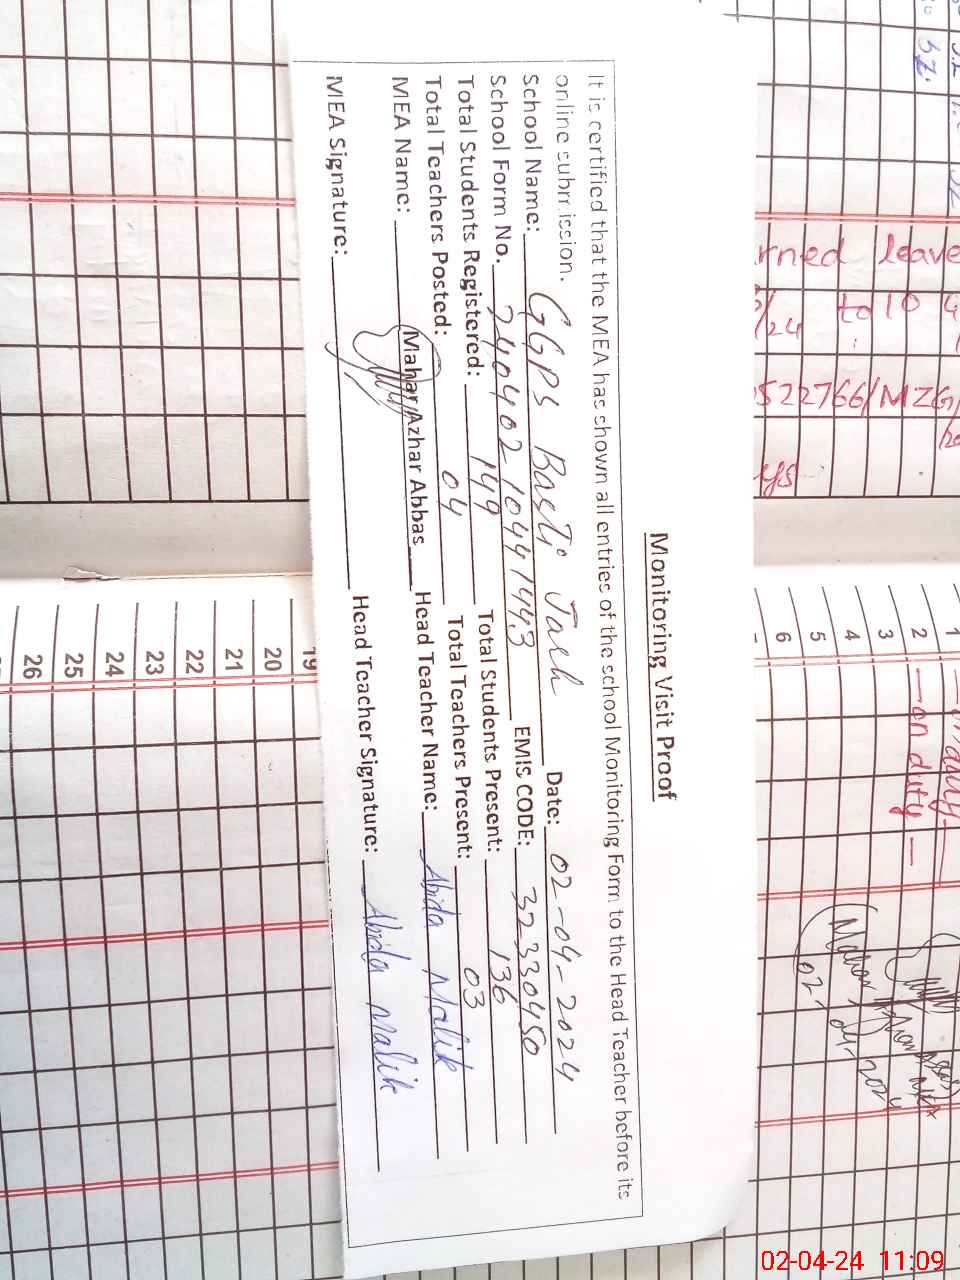 Monitoring Visit Proof
It is certified that the MEA has shown all entries of the school Monitoring Form to the Head Teacher before its
online submission.
School Name: GGPS Basti Jash Date: 02-04-2024
School Form No. 24040210441443 EMIS CODE: 32330450
Total Students Registered: 149 Total Students Present: 136
Total Teachers Posted: 04 Total Teachers Present: 03
MEA Name: Mahar Azhar Abbas Head Teacher Name: Abida Malik
MEA Signature: Head Teacher Signature: Abida Malik
rned leave
/24 to 10 4
522766/MZG/
1
2 — on duty —
3
4
5
6
02-04-2024
19
20
21
22
23
24
25
26
02-04-24 11:09